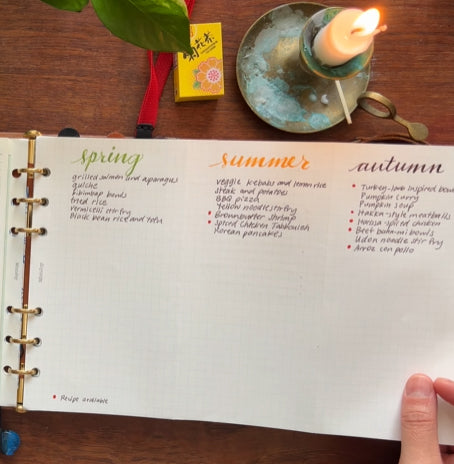 spring
grilled salmon and asparagus
quiche
bibimbap bowls
fried rice
vermicelli stirfry
black bean rice and tofu
summer
veggie kebabs and lemon rice
steak and potatoes
BBQ pizza
Yellow noodle stirfry
• Brown butter shrimp
• Spiced chicken Tabbouleh
Korean pancakes
autumn
• Turkey-lamb inspired bowl
Pumpkin curry
Pumpkin soup
• Hakka-style meatballs
• Harissa-spiced chicken
• Beef bahn-mi bowls
Udon noodle stir fry
• Arroz con pollo
• Recipe available